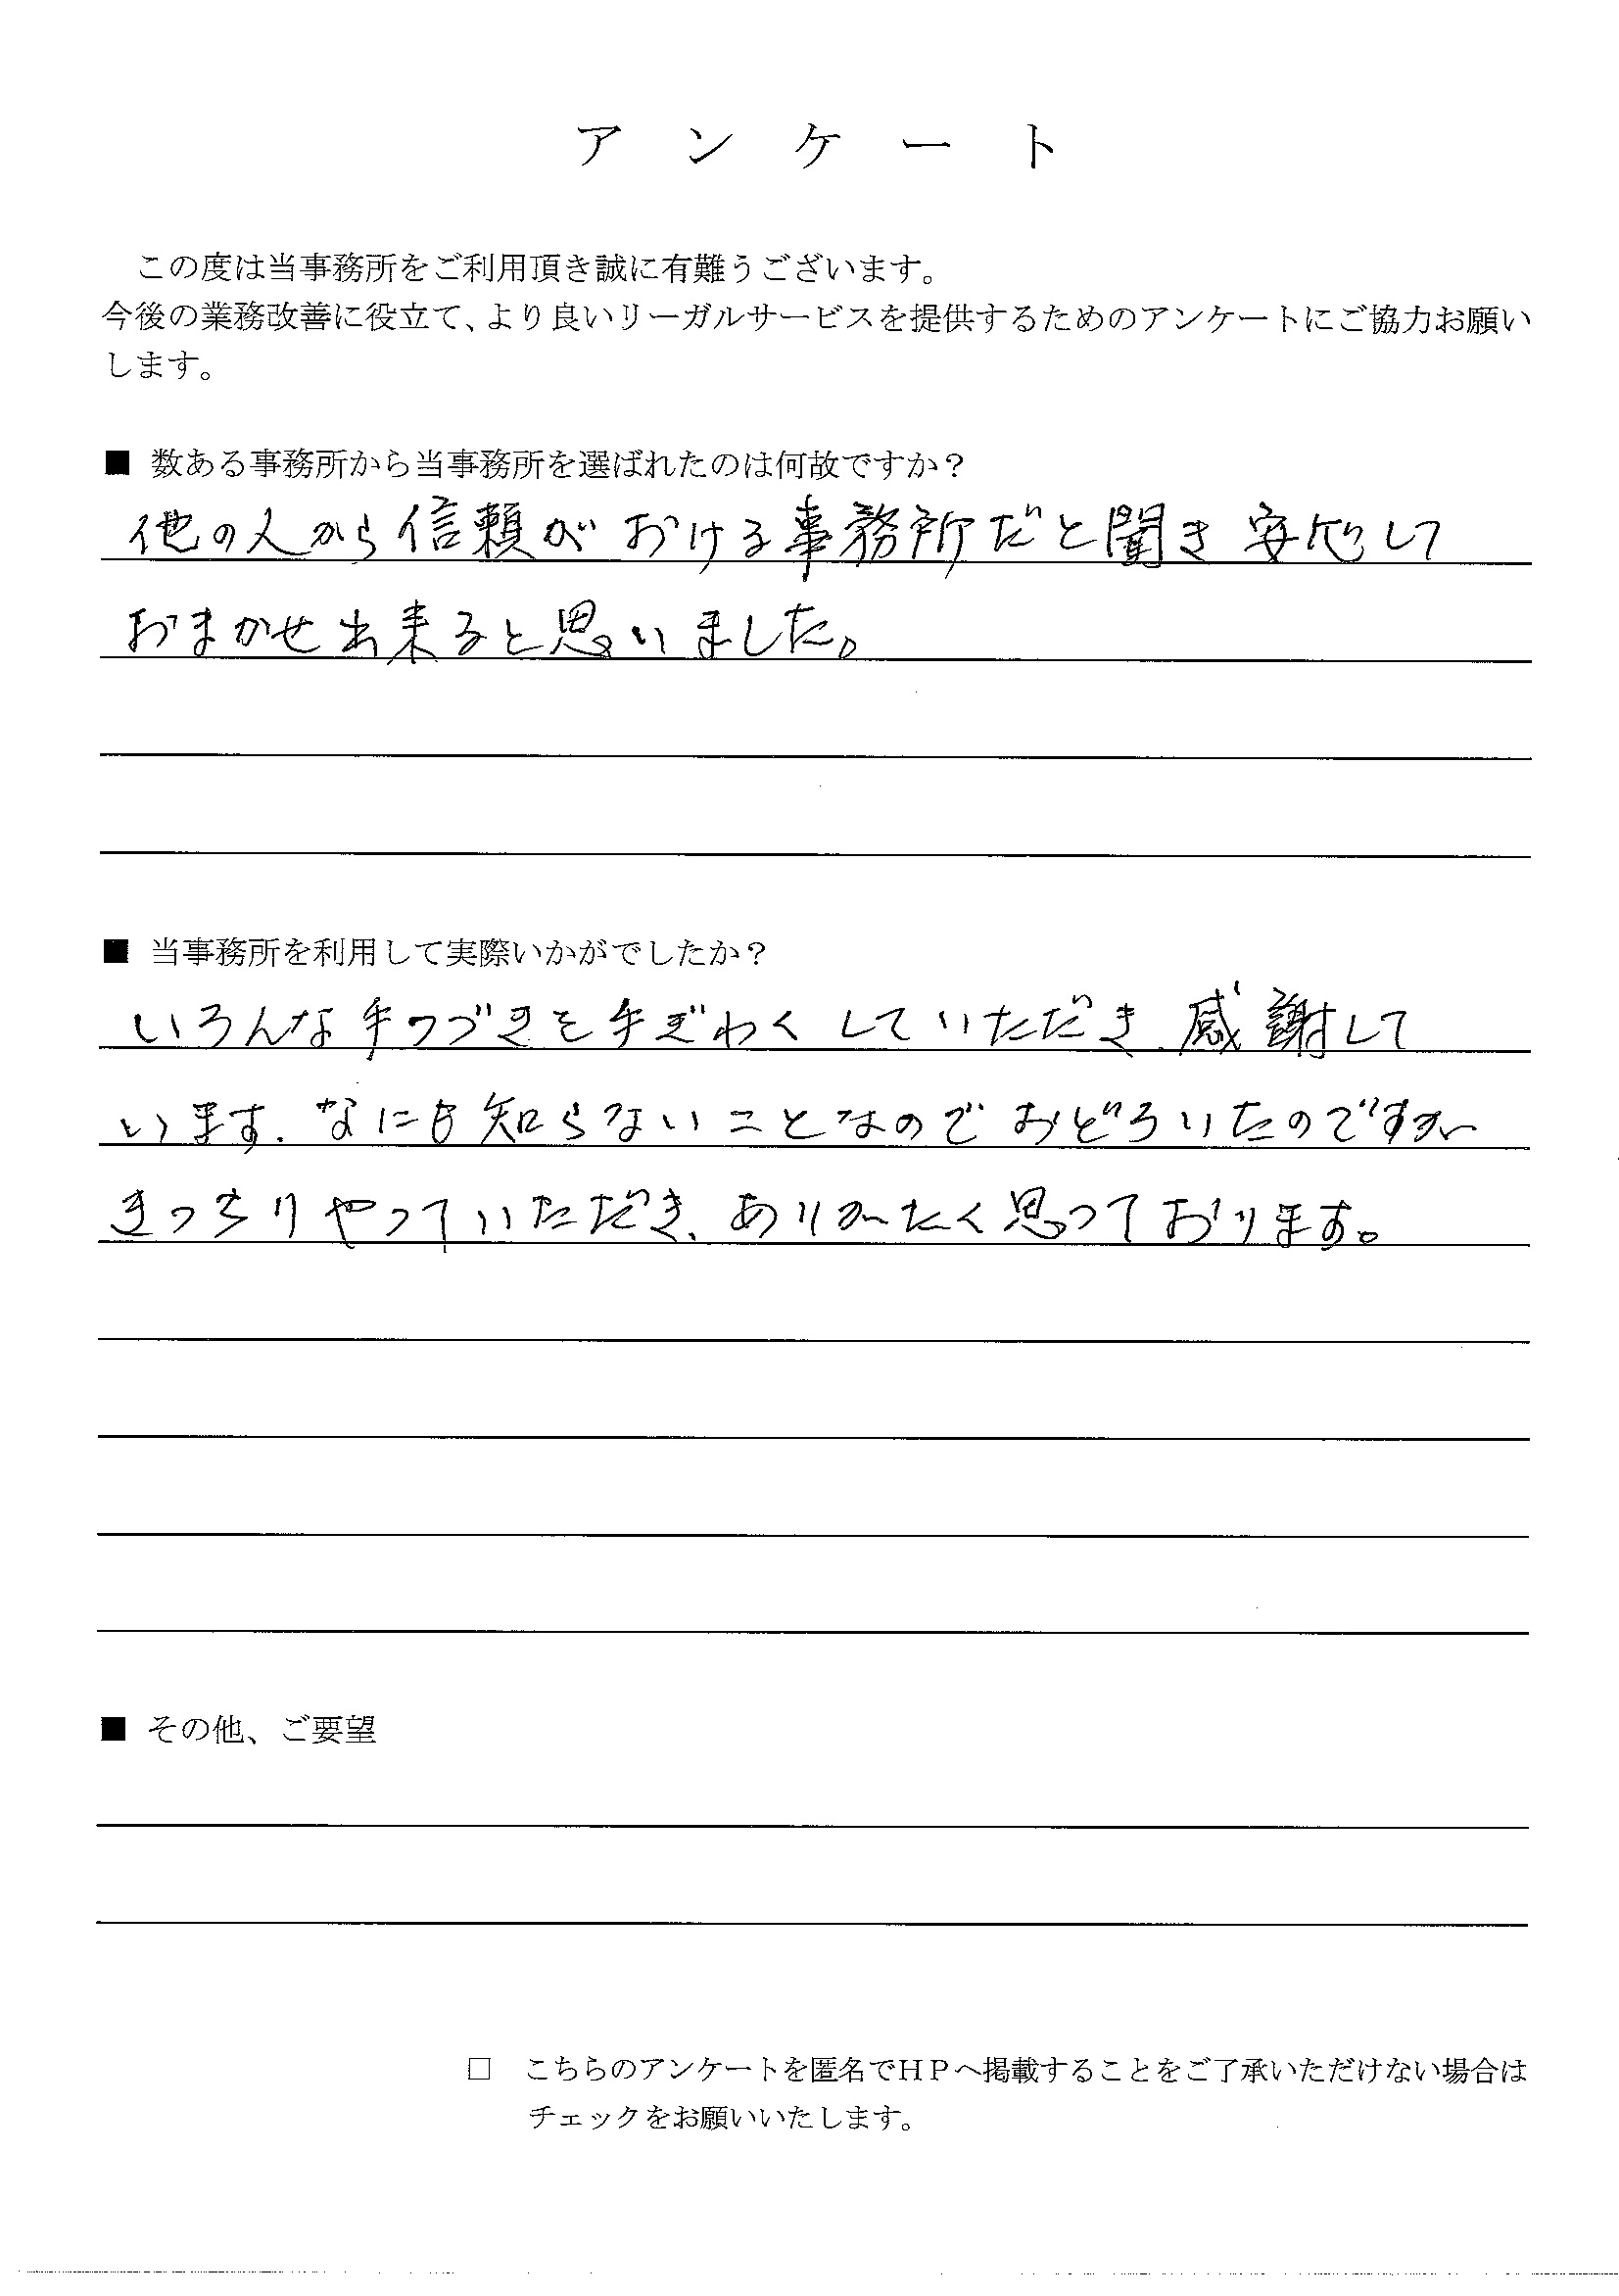 アンケート
この度は当事務所をご利用頂き誠に有難うございます。
今後の業務改善に役立て、より良いリーガルサービスを提供するためのアンケートにご協力お願い
します。
■ 数ある事務所から当事務所を選ばれたのは何故ですか？
他の人から信頼がおける事務所だと聞き安心して
おまかせ出来ると思いました。
■ 当事務所を利用して実際いかがでしたか？
いろんな手つづきを手ぎわくしていただき、感謝して
います。なにも知らないことなのでおどろいたのですが
きっちりやっていただき、ありがたく思っております。
■ その他、ご要望
□ こちらのアンケートを匿名でＨＰへ掲載することをご了承いただけない場合は
チェックをお願いいたします。